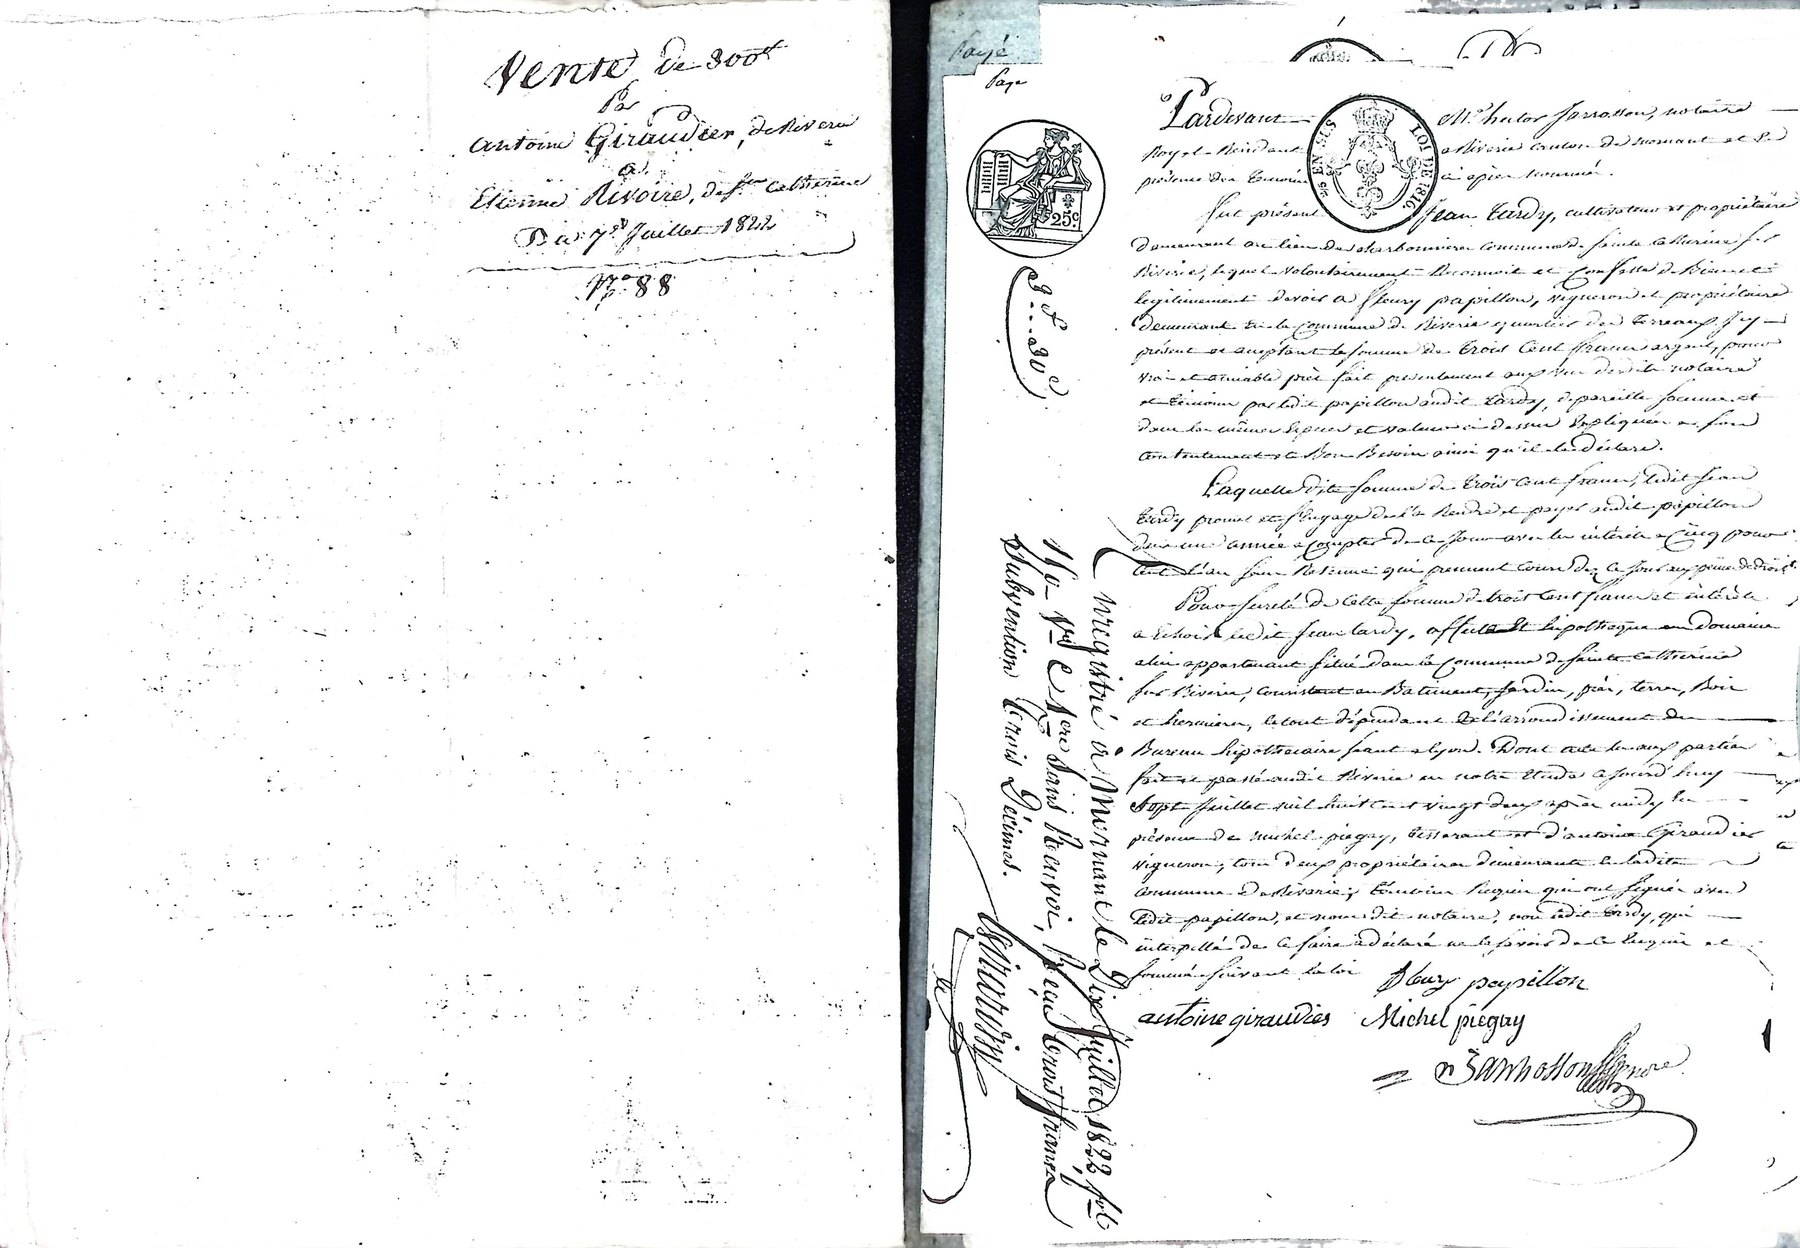 Vente de 300#
Par
Antoine Giraudier, de Riverie
a
Etienne Rivoire, de Ste Catherine
Du 7 Juillet 1822
No. 88
Payé
Paye
Pardevant Me. hector Jarrosson, notaire
Royal Résident a Riverie canton de mornant et En
présence des temoins ci après nommés.
25c.
EN SUS
LOI DE 1816.
fut présent Jean tardy, cultivateur et propriétaire
demeurant au lieu de charbonnière commune de Sainte Catherine sur
Riverie, lequel volontairement Reconnoit et Confesse de Bien et
legitimement devoir a fleury papillon, vigneron et propriétaire
demeurant en la commune de Riverie quartier des terreaux Icy
présent et acceptant la somme de trois Cent francs argent, pour
vrai et amiable prêt fait presentement aux vue desdits notaire
et témoins par ledit papillon audit tardy, de pareille somme et
dans les mêmes Espèces et valeurs ci dessus Expliquées a son
Contentement et Bon Besoin ainsi qu'il le déclare.
Laquelle dite somme de trois Cent francs, ledit Jean
tardy promet et s'Engage de la Rendre et payer audit papillon
dans une année a Compter de ce Jour avec les intérêts a Cinq pour
Cent l'an sans Retenue qui prennent Cours dez ce Jour aux peines de droit.
Pour sureté de Cette somme de trois Cent francs et intérêts
a Echoir ledit Jean tardy, affecte Et hipothèque un domaine
a lui appartenant situé dans la Commune de Sainte Catherine
sur Riverie, Consistant en Batiment, Jardin, prés, terres, Bois
et hermières, le tout dépendant de l'arrondissement du
Bureau hipothécaire séant a lyon. Dont acte lu aux parties
fait et passé audit Riverie en notre Etude ce Jourd'huy
Sept Juillet mil huit Cent vingt deux après midy En
présence de michel piégay, tisserant et d'antoine Giraudier
vigneron, tous deux propriétaires demeurants en ladite
Commune de Riverie, témoins Requis qui ont signés avec
ledit papillon, et nous dit notaire, non ledit tardy, qui
interpellé de ce faire a déclaré ne le savoir de ce Enquis et
sommé suivant la loi
fleury papillon
antoine giraudier Michel piégay
Jarrosson
Enregistré à Mornant le Dix Juillet 1822 fol.
159 Vo C 1ere Sans Renvoi, Reçu trois francs
Subvention trois Décimes.